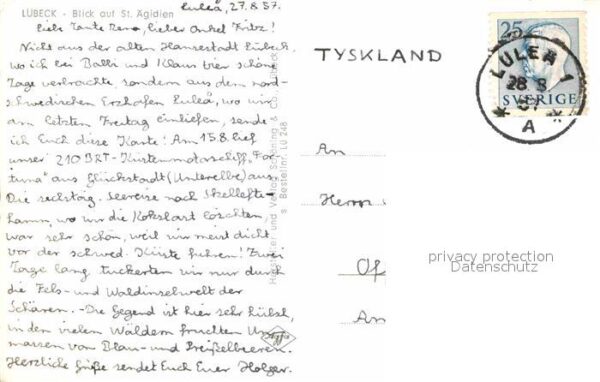 LÜBECK - Blick auf St. Ägidien
Luleå, 27.8.57.
Liebe Tante Rena, lieber Onkel Fritz!
Nicht aus der alten Hansestadt Lübeck,
wo ich bei Balbi und Klaus vier schöne
Tage verbrachte, sondern aus dem nord-
schwedischen Erzhafen Luleå, wo wir
am letzten Freitag einliefen, sende
ich Euch diese Karte! Am 15.8. lief
unser 210 BRT-Küstenmotorschiff "For-
tuna" aus Glückstadt (Unterelbe) aus.
Die sechstäg. Seereise nach Skellefte-
hamn, wo wir die Kokslast löschten,
war sehr schön, weil wir meist dicht
vor der schwed. Küste fuhren! Zwei
Tage lang tuckerten wir nur durch
die Fels- und Waldinselwelt der
Schären. - Die Gegend ist hier sehr hübsch,
in den vielen Wäldern fruchten Un-
massen von Blau- und Preißelbeeren.
Herzliche Grüße sendet Euch Euer Holger.
Verlag Schöning & Co., Lübeck
Bestellnr. Lü 248
Agfa
TYSKLAND
An
Herrn
An
25
SVERIGE
LULEÅ 1
28 8
57
A
privacy protection
Datenschutz